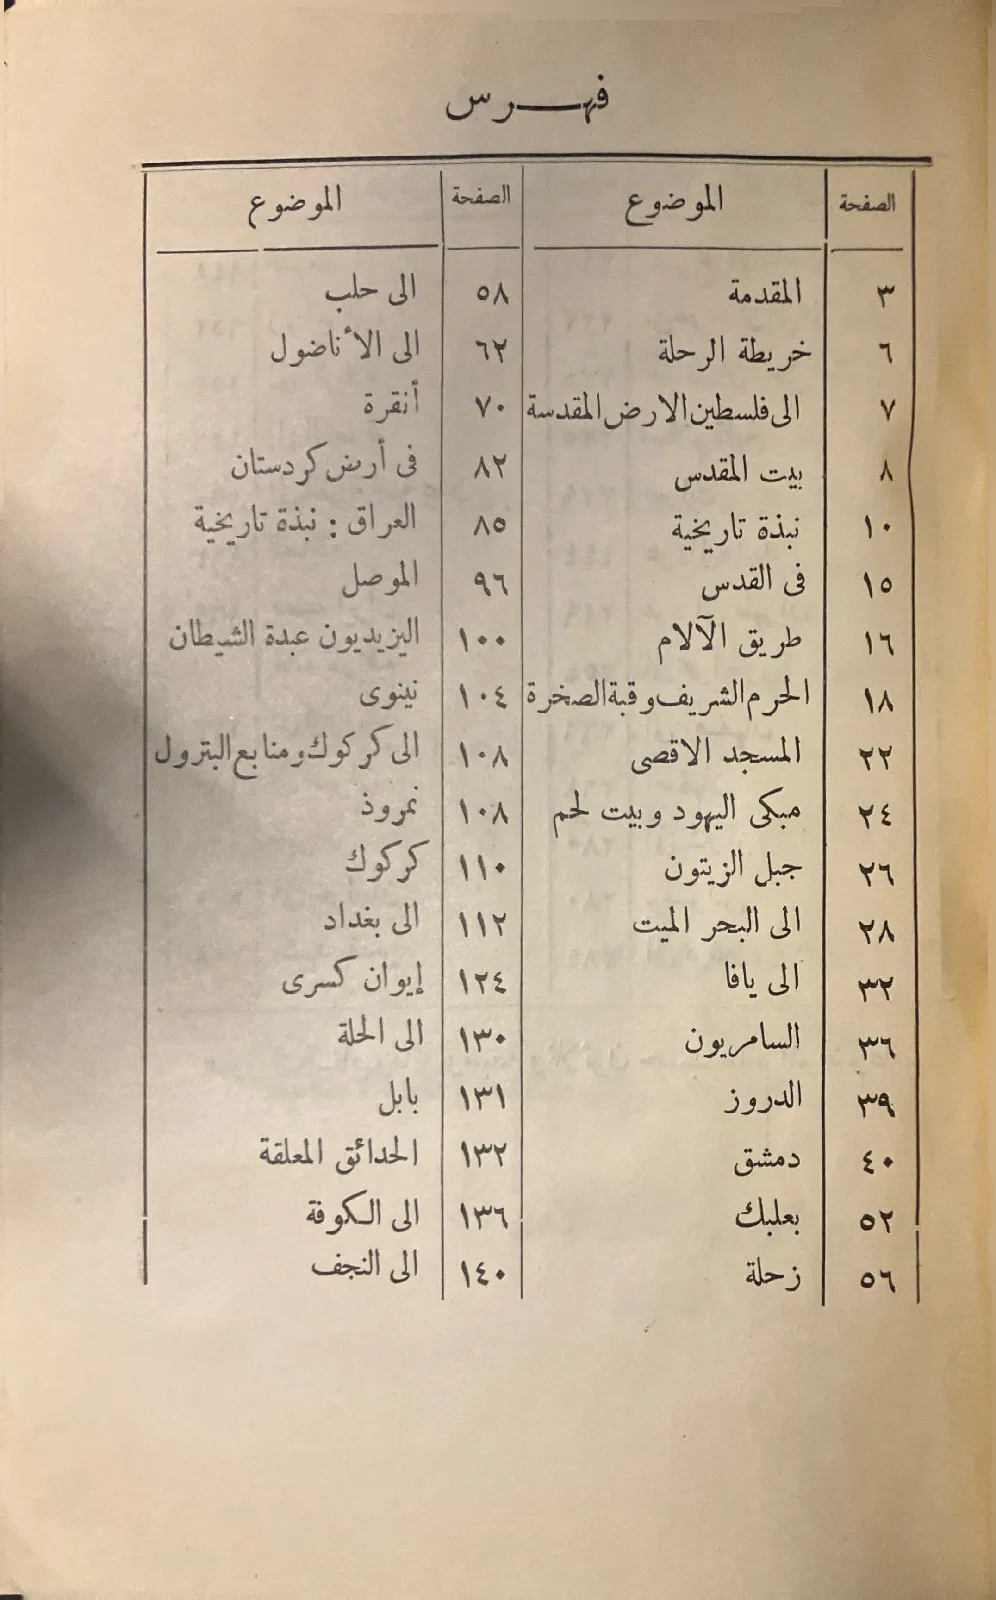 فهرس
الصفحة الموضوع الصفحة الموضوع
٣ المقدمة ٥٨ الى حلب
٦ خريطة الرحلة ٦٢ الى الأناضول
٧ الى فلسطين الارض المقدسة ٧٠ أنقرة
٨ بيت المقدس ٨٢ فى أرض كردستان
١٠ نبذة تاريخية ٨٥ العراق : نبذة تاريخية
١٥ فى القدس ٩٦ الموصل
١٦ طريق الآلام ١٠٠ اليزيديون عبدة الشيطان
١٨ الحرم الشريف وقبة الصخرة ١٠٤ نينوى
٢٢ المسجد الاقصى ١٠٨ الى كركوك ومنابع البترول
٢٤ مبكى اليهود وبيت لحم ١٠٨ نمروذ
٢٦ جبل الزيتون ١١٠ كركوك
٢٨ الى البحر الميت ١١٢ الى بغداد
٣٢ الى يافا ١٢٤ إيوان كسرى
٣٦ السامريون ١٣٠ الى الحلة
٣٩ الدروز ١٣١ بابل
٤٠ دمشق ١٣٢ الحدائق المعلقة
٥٢ بعلبك ١٣٦ الى الكوفة
٥٦ زحلة ١٤٠ الى النجف